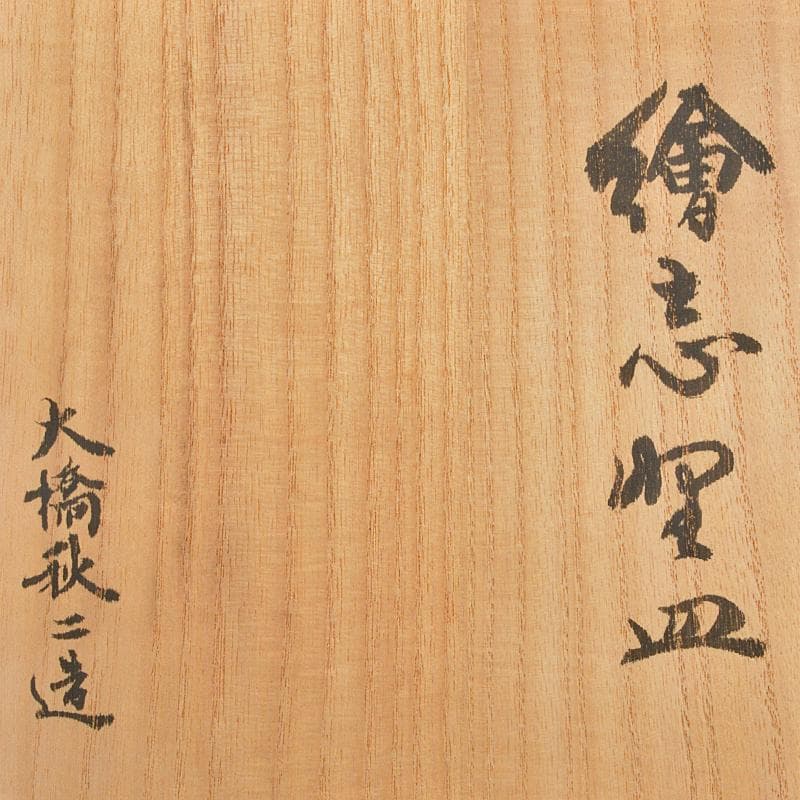 繪志埜皿
大橋秋二造